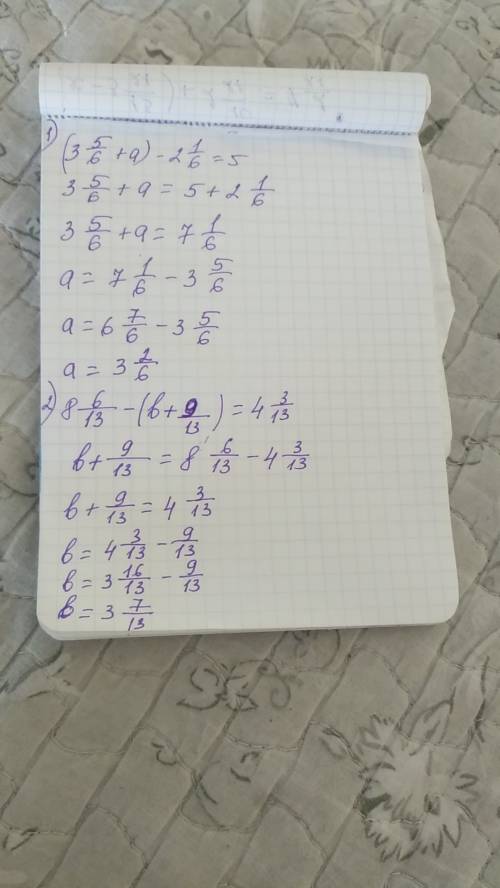 1)
(3 5/6 + a) - 2 1/6 = 5
3 5/6 + a = 5 + 2 1/6
3 5/6 + a = 7 1/6
a = 7 1/6 - 3 5/6
a = 6 7/6 - 3 5/6
a = 3 2/6
2) 8 6/13 - (b + 9/13) = 4 3/13
b + 9/13 = 8 6/13 - 4 3/13
b + 9/13 = 4 3/13
b = 4 3/13 - 9/13
b = 3 16/13 - 9/13
b = 3 7/13